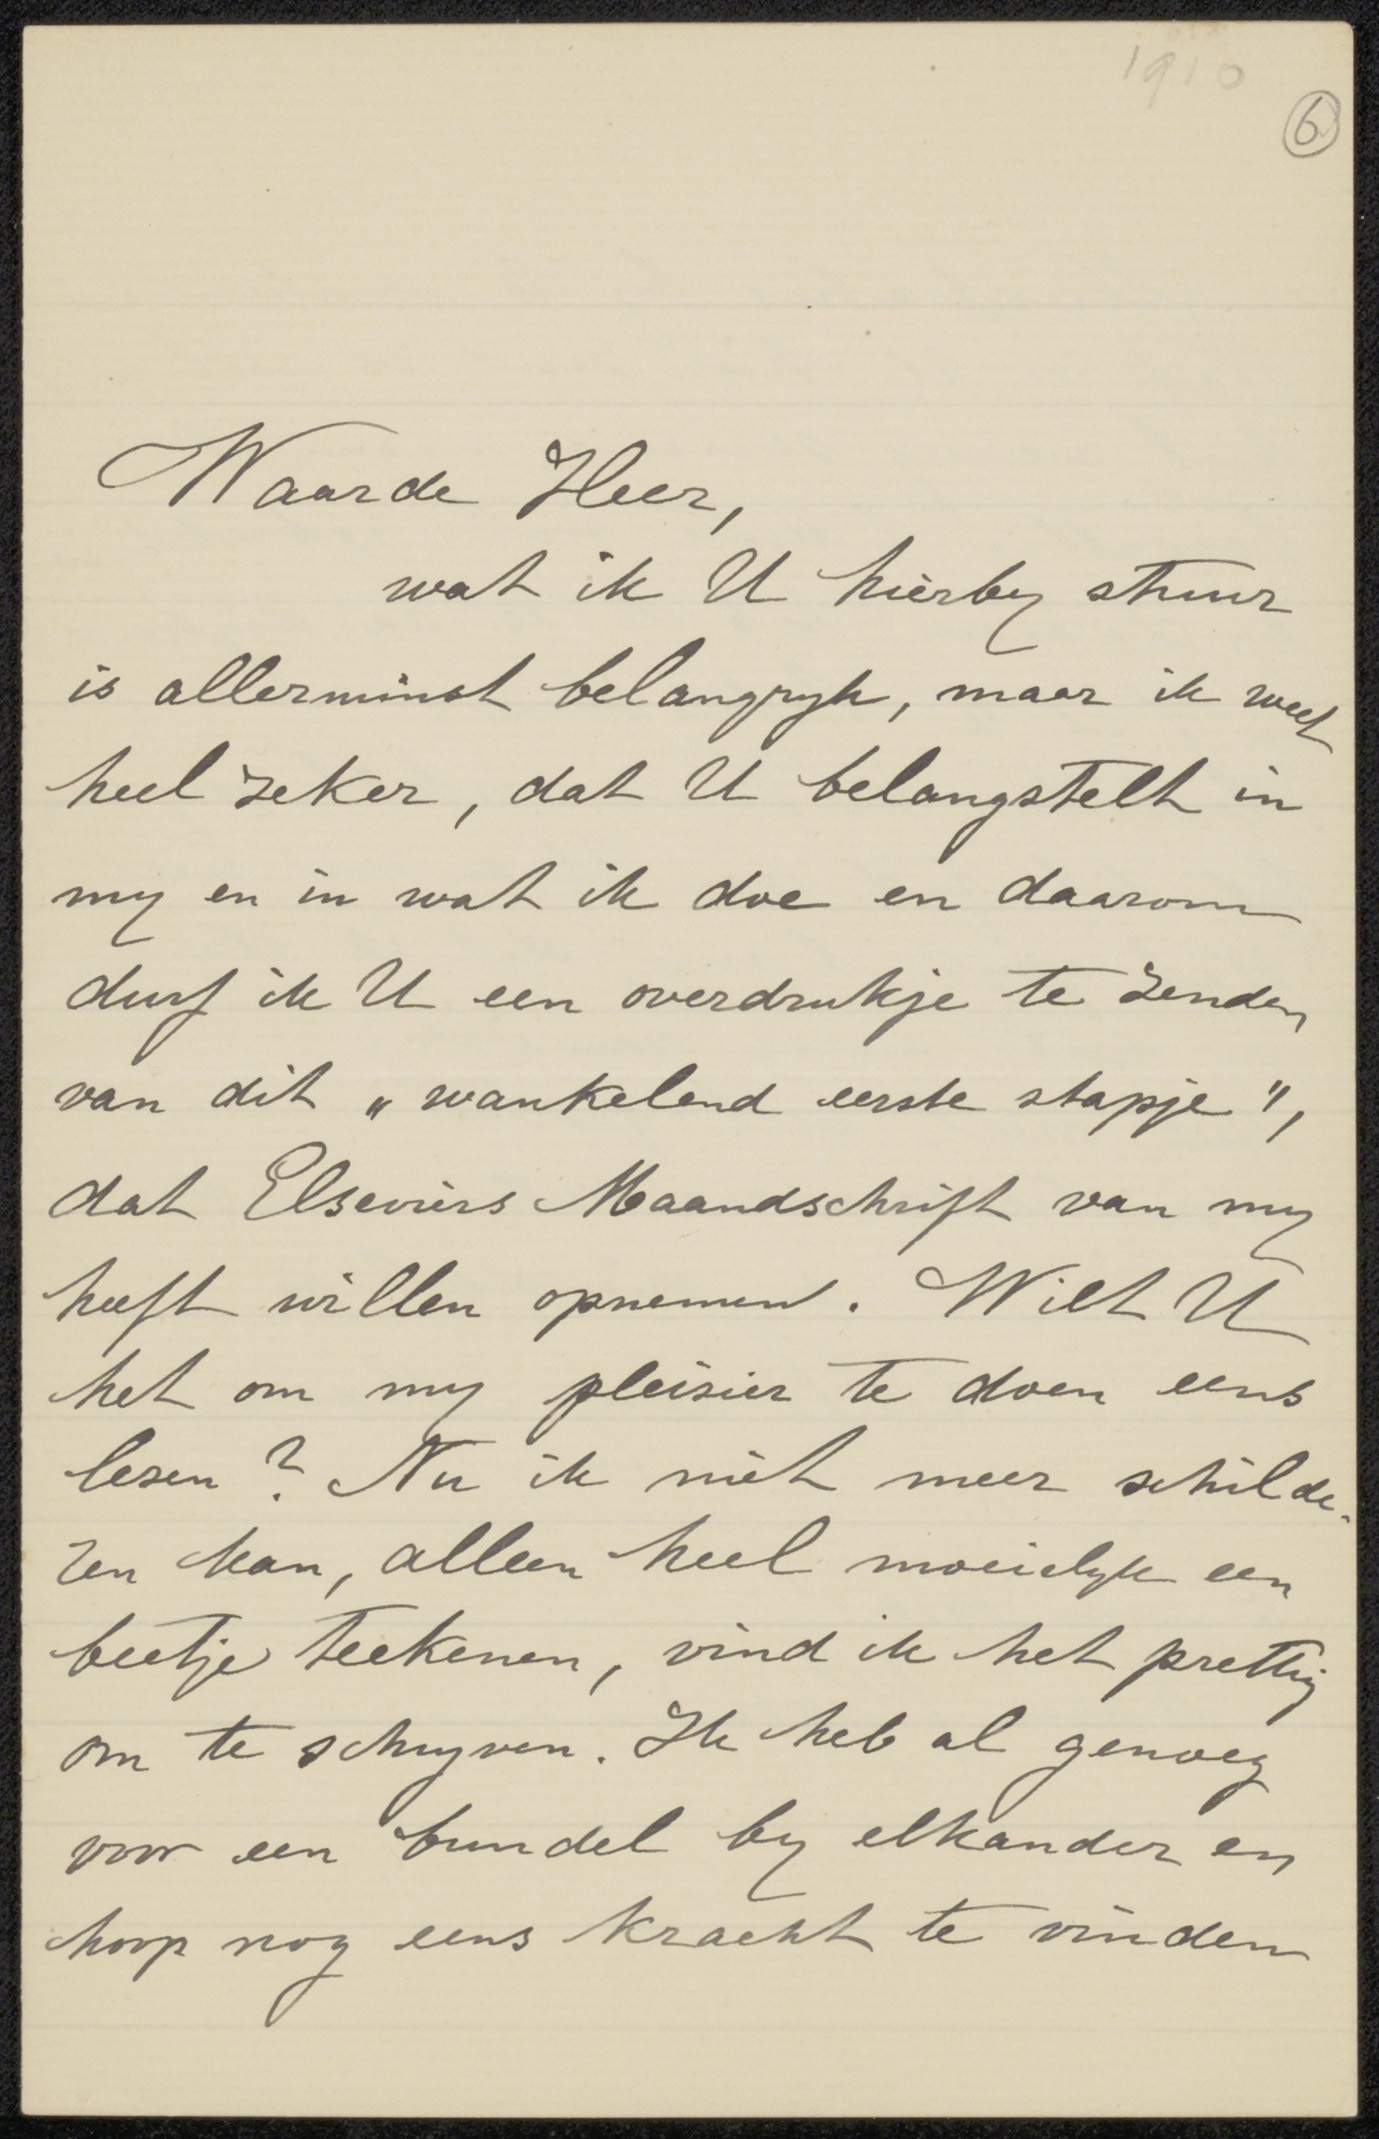 1910
6
Waarde Heer,
wat ik U hierby stuur
is allerminst belangryk, maar ik weet
heel zeker, dat U belangstelt in
my en in wat ik doe en daarom
durf ik U een overdrukje te zenden
van dit „wankelend eerste stapje",
dat Elseviers Maandschrift van my
heeft willen opnemen. Wilt U
het om my pleisier te doen eens
lezen? Nu ik niet meer schilde-
ren kan, alleen heel moeielyk een
beetje teekenen, vind ik het prettig
om te schryven. Ik heb al genoeg
voor een bundel by elkander en
hoop nog eens kracht te vinden